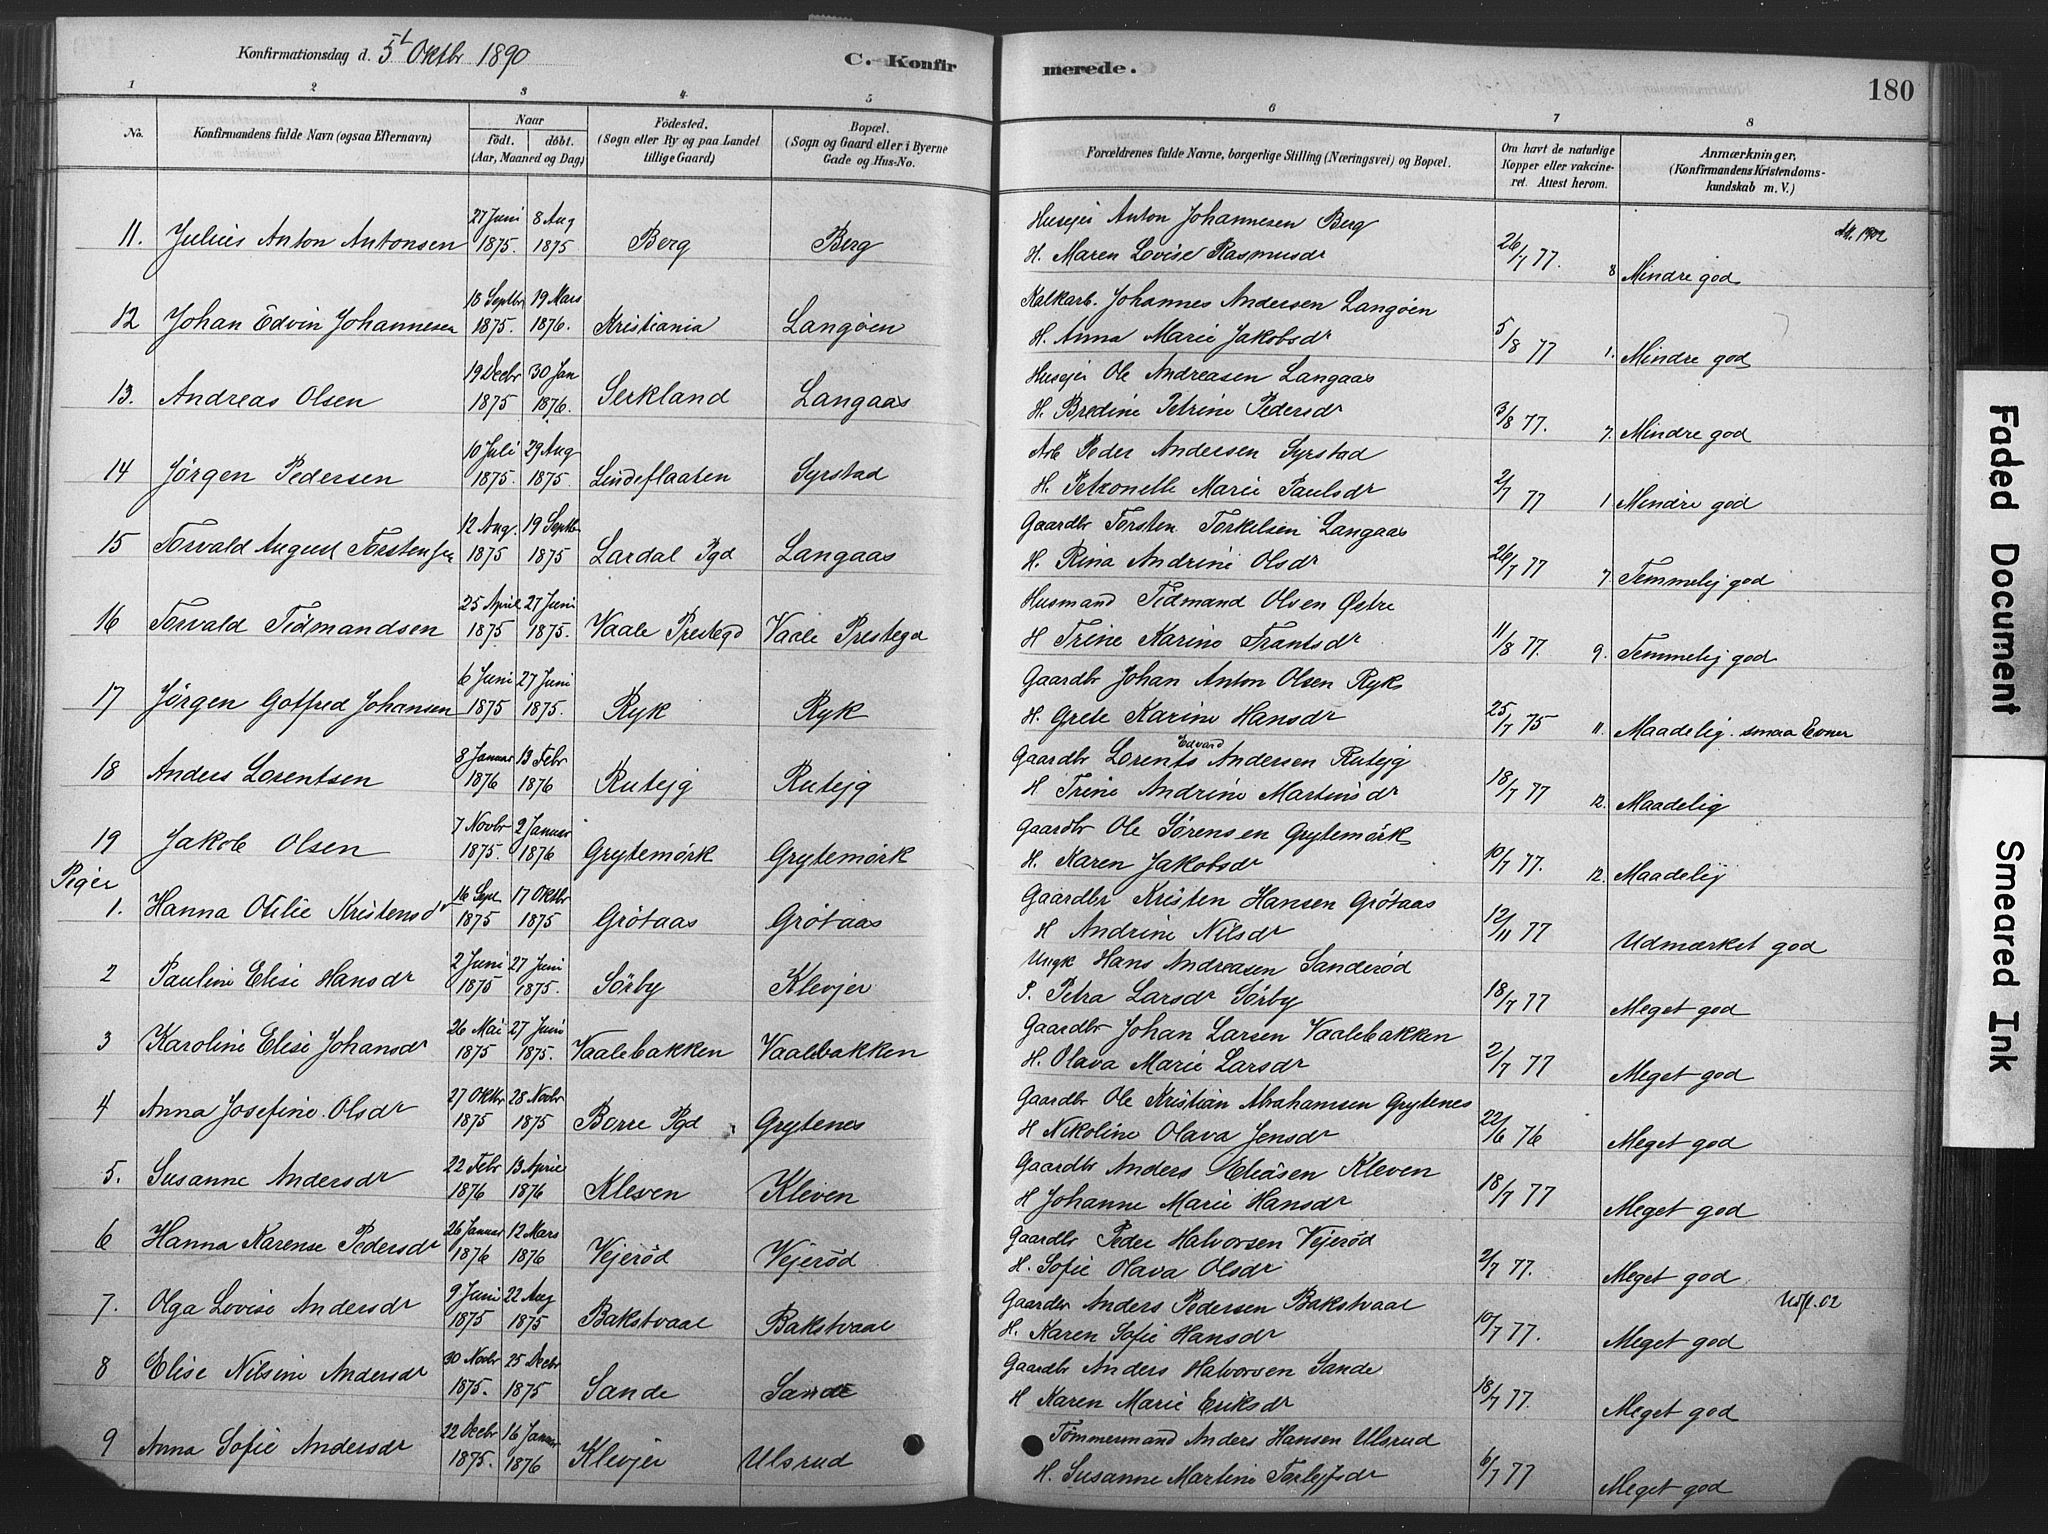 Konfirmationsdag d. 5t Oktbr 1890 C. Konfirmerede. 180
1 2 3 4 5 6 7 8
No. Konfirmandens fulde Navn (ogsaa Efternavn) Naar födt. döbt. (Aar, Maaned og Dag) Födested. (Sogn eller By og paa Landet tillige Gaard) Bopæl. (Sogn og Gaard eller i Byerne Gade og Hus-No. Forældrenes fulde Navne, borgerlige Stilling (Næringsvei) og Bopæl. Om havt de naturlige Kopper eller vakcineret. Attest herom. Anmærkninger, (Konfirmandens Kristendomskundskab m. V.)
11. Julius Anton Antonsen 27 Juni 1875. 8 Aug 1875 Berg Berg Husejer Anton Johannesen Berg
H. Maren Lovise Rasmusdr 26/7 77. 8 Mindre god
12 Johan Edvin Johannesen 18 Septbr 1875. 19 Mars 1876. Kristiania Langöen Kalkarb. Johannes Andersen Langöen
H. Anna Marie Jakobsdr 5/8 77 1. Mindre god
13. Andreas Olsen 19 Decbr 1875 30 Jan 1876. Serkland Langaas Husejer Ole Andreasen Langaas
H. Bredine Petrine Pedersdr 3/8 77. 7. Mindre god
14 Jörgen Pedersen 10 Juli 1875. 29 Aug 1875. Lindeflaaten Syrstad Arb Peder Andersen Syrstad
H. Petronelle Marie Paulsdr 2/7 77 1 Mindre god
15 Torvald August Torstensen 12 Aug. 1875 19 Septbr 1875 Lardal Pgd Langaas Gaardbr Torsten Torkelsen Langaas
H. Rina Andrine Olsdr 26/7 77 7. Temmelig god
16 Torvald Tidmandsen 25 April 1875 27 Juni 1875. Vaale Prestegd Vaale Prestegd Husmand Tidmand Olsen Østre
H Trine Karine Frantsdr 11/8 77. 9. Temmelig god
17 Jörgen Gotfred Johansen 6 Juni 1875 27 Juni 1875. Ryk Ryk Gaardbr Johan Anton Olsen Ryk
H. Grete Karine Hansdr 25/7 75 11. Maadelig. smaa Evner
18 Anders Lorentsen 8 Januar 1876 13 Febr 1876 Rutejg Rutejg Gaardbr Lorents Edvard Andersen Rutejg
H Trine Andrine Martinsdr 18/7 77 12. Maadelig
19 Jakob Olsen 7 Novbr 1875. 2 Januar 1876 Grytemörk Grytemörk Gaardbr Ole Sørensen Grytemörk
H. Karen Jakobsdr 10/7 77. 12. Maadelig
Piger
1. Hanna Otilie Kristensdr 16 Sept 1875 17 Oktbr 1875 Grötaas Grötaas Gaardbr Kristen Hansen Grötaas
H Andrine Nilsdr 12/11 77 Udmærket god
2 Pauline Elise Hansdr 2 Juni 1875 27 Juni 1875. Sörby Klevjer Ungk Hans Andreasen Sanderöd
P. Petra Larsdr Sörby 18/7 77 Meget god
3 Karoline Elise Johansdr 26 Mai 1875 27 Juni 1875. Vaalebakken Vaalebakken Gaardbr Johan Larsen Vaalebakken
H. Olava Marie Larsdr 2/7 77 Meget god
4 Anna Josefine Olsdr 27 Oktbr 1875 28 Novbr 1875 Borre Pgd Grytenes Gaardbr Ole Kristian Abrahamsen Grytenes
H Nikoline Olava Jensdr 22/6 76 Meget god
5. Susanne Andersdr 22 Febr 1876 13 April 1876 Kleven Kleven Gaardbr Anders Eliasen Kleven
H Johanne Marie Hansdr 18/7 77 Meget god
6 Hanna Karense Pedersdr 26 Januar 1876 12 Mars 1876 Vejeröd Vejeröd Gaardbr Peder Halvorsen Vejeröd
H. Sofie Olava Olsdr 2/7 77. Meget god
7. Olga Lovise Andersdr 9 Juni 1875 22 Aug 1875 Bakstvaal Bakstvaal Gaardbr Anders Pedersen Bakstvaal Udfl. 02
H. Karen Sofie Hansdr 10/7 77. Meget god
8 Elise Nilsine Andersdr 30 Novbr 1875. 25 Decbr 1875 Sande Sande Gaardbr Anders Halvorsen Sande
H Karen Marie Eriksdr 18/7 77. Meget god
9 Anna Sofie Andersdr 22 Decbr 1875. 16 Januar 1876 Klevjer Ulsrud Tömmermand Anders Hansen Ulsrud
H. Susanne Martine Torlejfsdr 6/7 77 Meget god
Faded Document
Smeared Ink